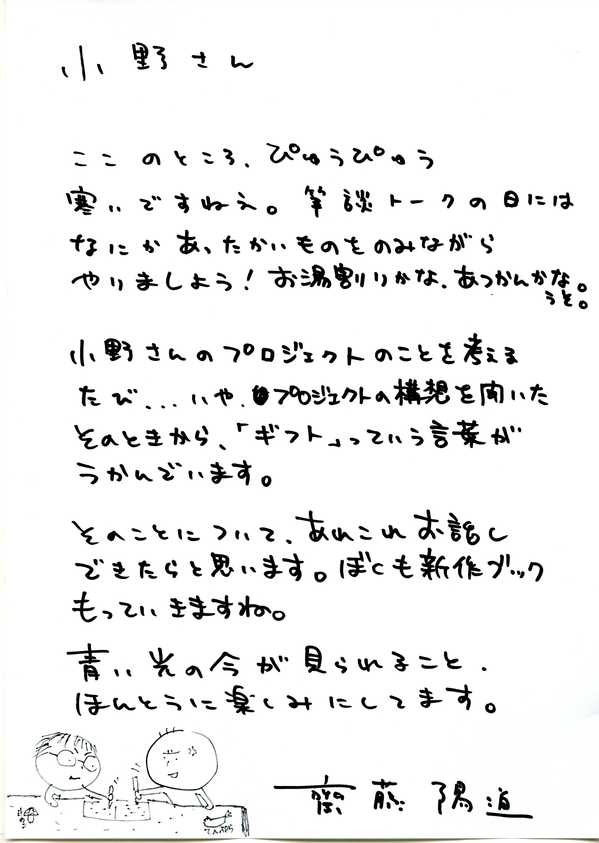 小野さん
ここのところ、ぴゅうぴゅう
寒いですねえ。筆談トークの日には
なにかあったかいものをのみながら
やりましょう！お湯割りかな、あつかんかな。
うそ。
小野さんのプロジェクトのことを考える
たび...いや、プロジェクトの構想を聞いた
そのときから、「ギフト」っていう言葉が
うかんでいます。
そのことについて、あれこれお話し
できたらと思います。ぼくも新作ブック
もっていきますね。
青い光の今が見られること、
ほんとうに楽しみにしてます。
齋藤陽道
てんぷら